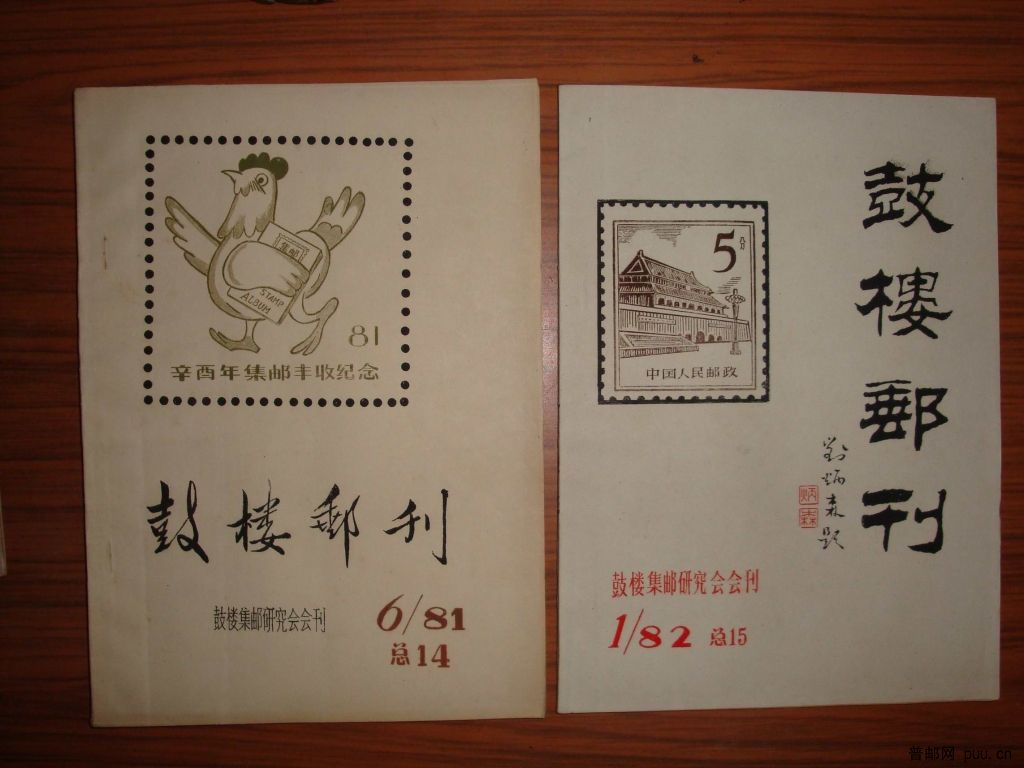 集邮
STAMP
ALBUM
81
辛酉年集邮丰收纪念
鼓楼郵刊
鼓楼集邮研究会会刊
6/81
总14
5分
中国人民邮政
鼓樓郵刊
劉炳森題
炳
森
鼓楼集邮研究会会刊
1/82 总15
普邮网 puu.cn